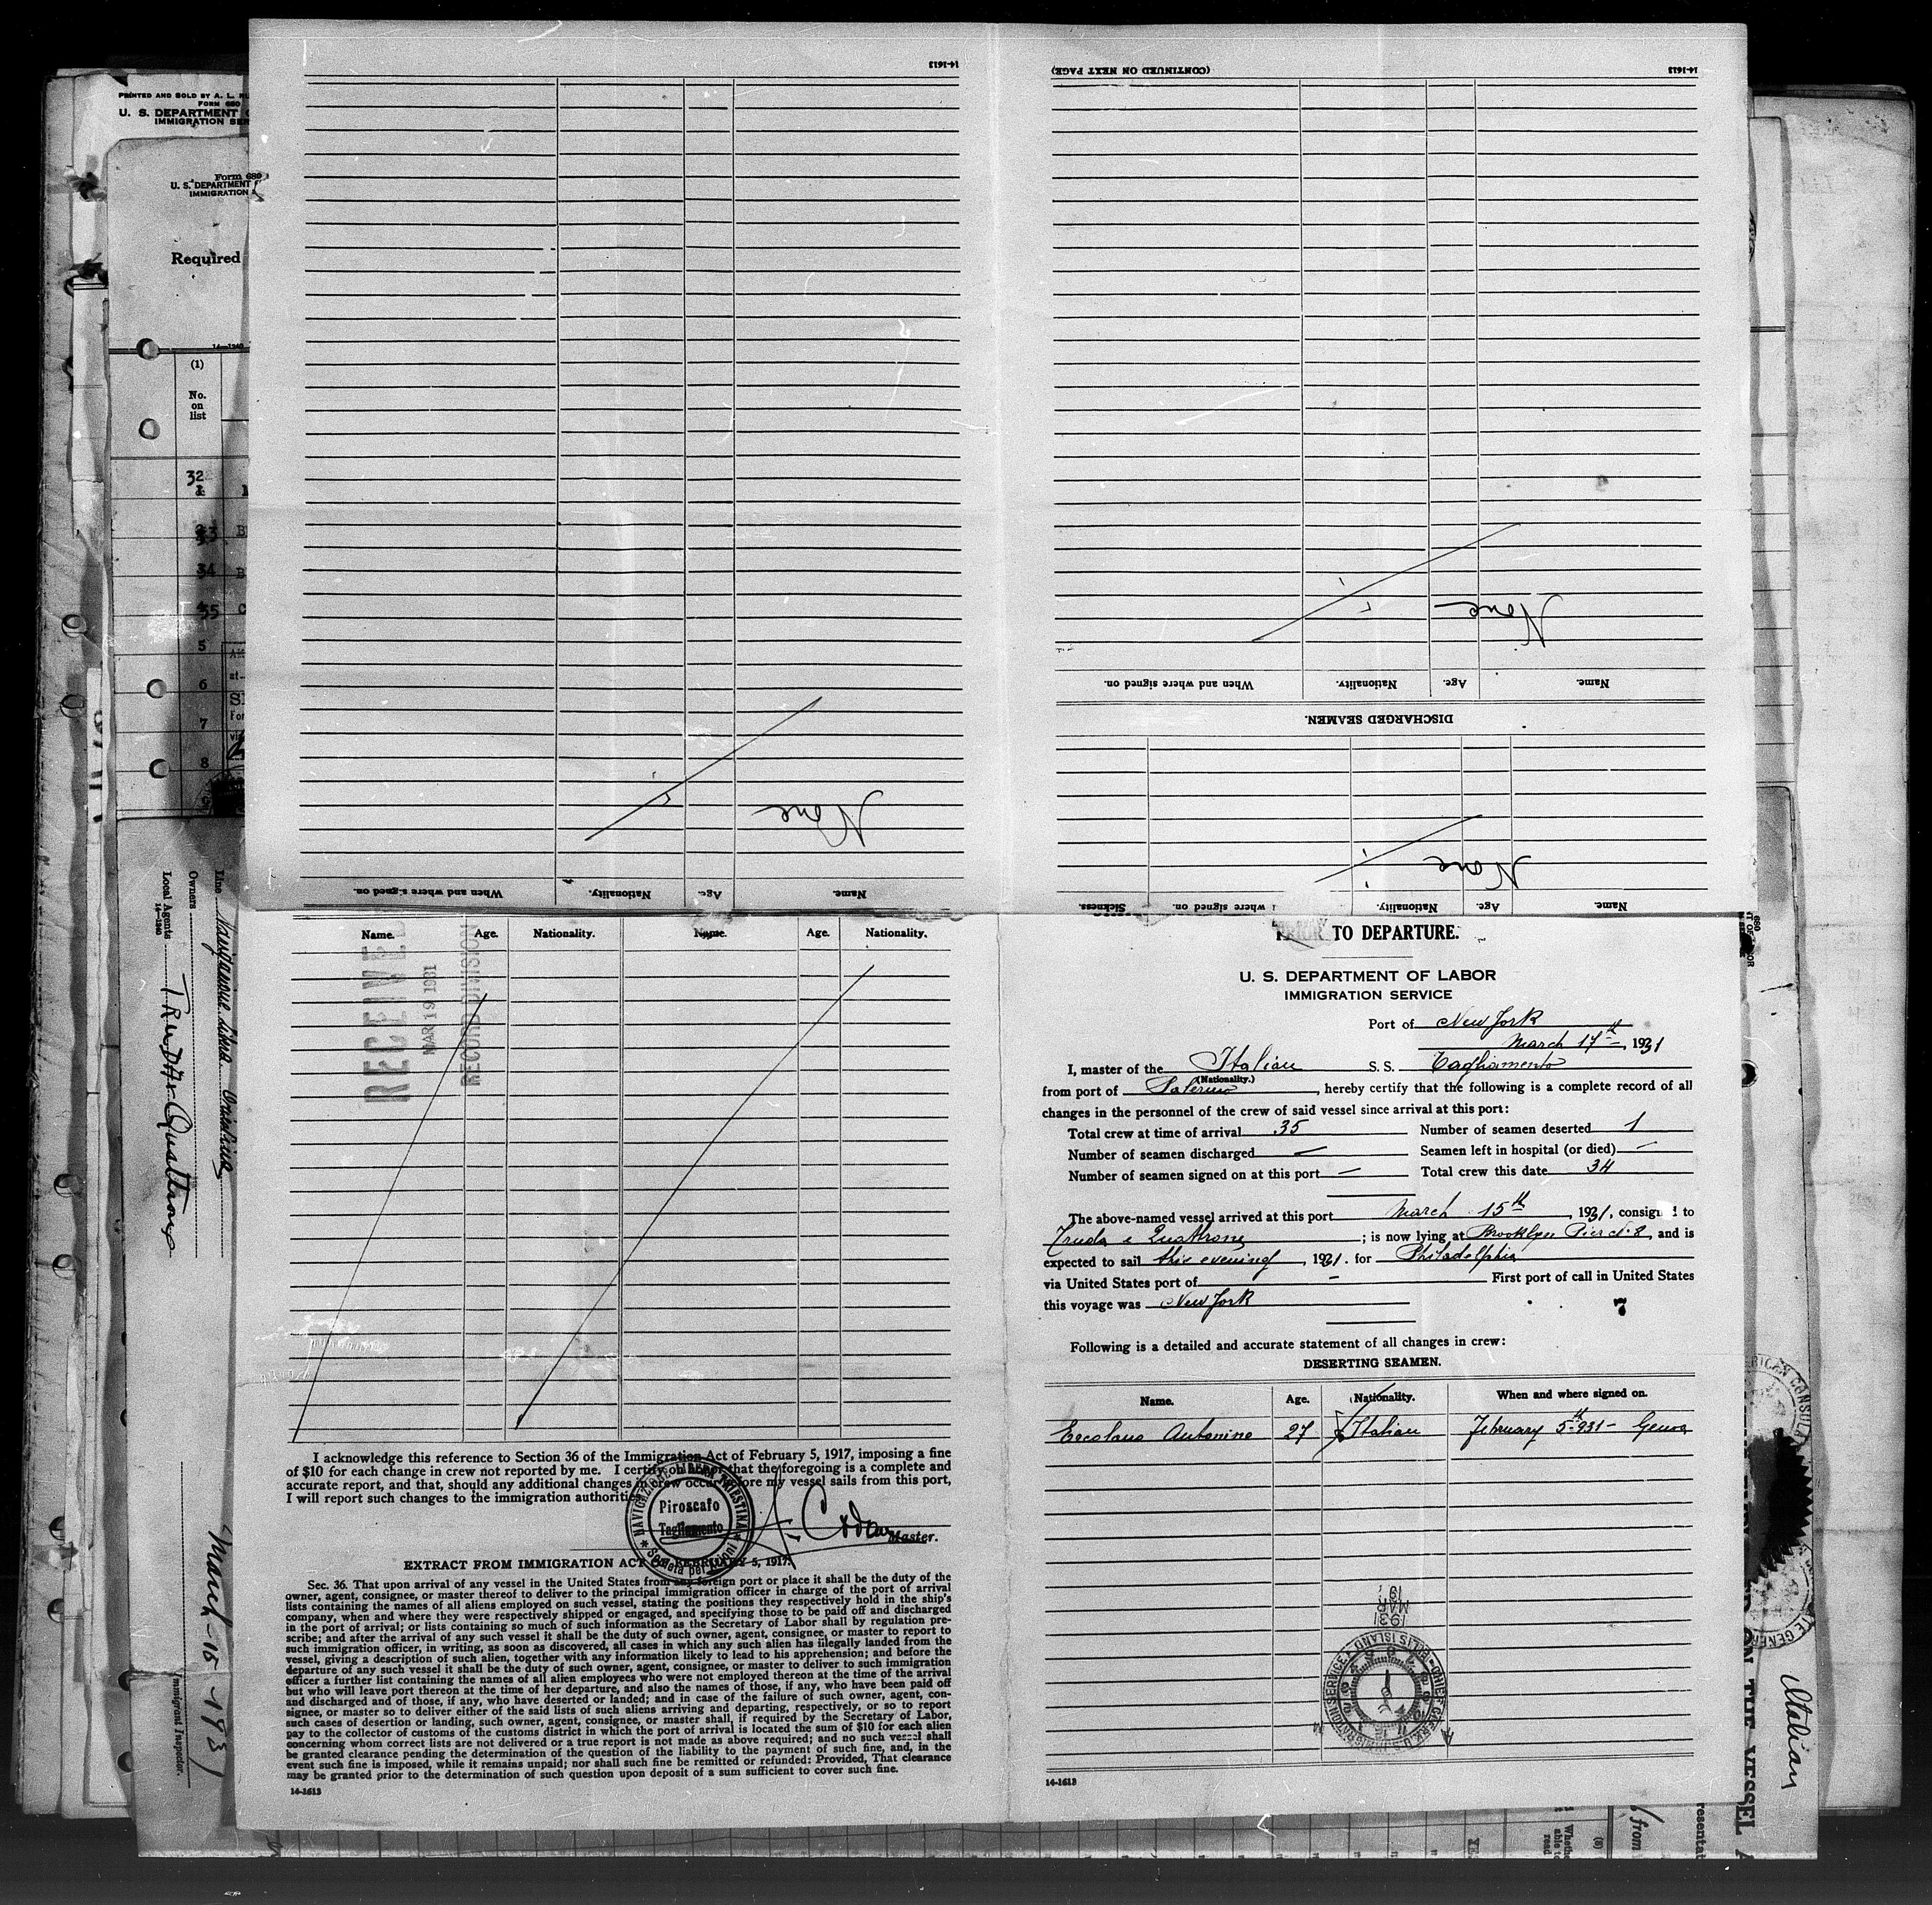 PRINTED AND SOLD BY A. L.
FORM 680
U. S. DEPARTMENT
IMMIGRATION
Form 680
U. S. DEPARTMENT
IMMIGRATION
Required
14-1240
(1)
No.
on
list
32
1
34
5
6
7
8
14-1613
None
Name.
Age.
Nationality.
When and where signed on.
(CONTINUED ON NEXT PAGE)
14-1613
None
Name.
Age.
Nationality.
When and where signed on.
DISCHARGED SEAMEN.
None
Name.
Age.
Nationality.
where signed on.
Sickness.
Line
Owners
Local Agents
14-1240
March-15-1931
Immigrant Inspector.
Name. Age. Nationality. Name. Age. Nationality.
RECEIVED
MAR 19 1931
RECORD DIVISION
I acknowledge this reference to Section 36 of the Immigration Act of February 5, 1917, imposing a fine
of $10 for each change in crew not reported by me. I certify on that the foregoing is a complete and
accurate report, and that, should any additional changes occur before my vessel sails from this port,
I will report such changes to the immigration
NAVIGAZIONE LIBERA TRIESTINA
Piroscafo
Tagliamento
Società per Azioni
Master.
EXTRACT FROM IMMIGRATION ACT OF FEBRUARY 5, 1917.
Sec. 36. That upon arrival of any vessel in the United States from any foreign port or place it shall be the duty of the
owner, agent, consignee, or master thereof to deliver to the principal immigration officer in charge of the port of arrival
lists containing the names of all aliens employed on such vessel, stating the positions they respectively hold in the ship's
company, when and where they were respectively shipped or engaged, and specifying those to be paid off and discharged
in the port of arrival; or lists containing so much of such information as the Secretary of Labor shall by regulation pre-
scribe; and after the arrival of any such vessel it shall be the duty of such owner, agent, consignee, or master to report to
such immigration officer, in writing, as soon as discovered, all cases in which any such alien has illegally landed from the
vessel, giving a description of such alien, together with any information likely to lead to his apprehension; and before the
departure of any such vessel it shall be the duty of such owner, agent, consignee, or master to deliver to such immigration
officer a further list containing the names of all alien employees who were not employed thereon at the time of the arrival
but who will leave port thereon at the time of her departure, and also the names of those, if any, who have been paid off
and discharged and of those, if any, who have deserted or landed; and in case of the failure of such owner, agent, con-
signee, or master so to deliver either of the said lists of such aliens arriving and departing, respectively, or so to report
such cases of desertion or landing, such owner, agent, consignee, or master shall, if required by the Secretary of Labor,
pay to the collector of customs of the customs district in which the port of arrival is located the sum of $10 for each alien
concerning whom correct lists are not delivered or a true report is not made as above required; and no such vessel shall
be granted clearance pending the determination of the question of the liability to the payment of such fine, and, in the
event such fine is imposed, while it remains unpaid; nor shall such fine be remitted or refunded: Provided, That clearance
may be granted prior to the determination of such question upon deposit of a sum sufficient to cover such fine.
14-1613
PRIOR TO DEPARTURE.
U. S. DEPARTMENT OF LABOR
IMMIGRATION SERVICE
Port of New York
March 17th, 1931
I, master of the Italian S. S. Tagliamento
(Nationality.)
from port of Palermo, hereby certify that the following is a complete record of all
changes in the personnel of the crew of said vessel since arrival at this port:
Total crew at time of arrival 35 Number of seamen deserted 1
Number of seamen discharged — Seamen left in hospital (or died) —
Number of seamen signed on at this port — Total crew this date 34
The above-named vessel arrived at this port March 15th, 1931, consigned to
Truda e Quattrone; is now lying at Brooklyn Pier N: 8, and is
expected to sail this evening, 1931. for Philadelphia
via United States port of — First port of call in United States
this voyage was New York
7
Following is a detailed and accurate statement of all changes in crew:
DESERTING SEAMEN.
Name. Age. Nationality. When and where signed on.
Ercolano Antonino 27 Italian February 5th 931 - Genoa
1931
MAR
19
14-1613
Italian